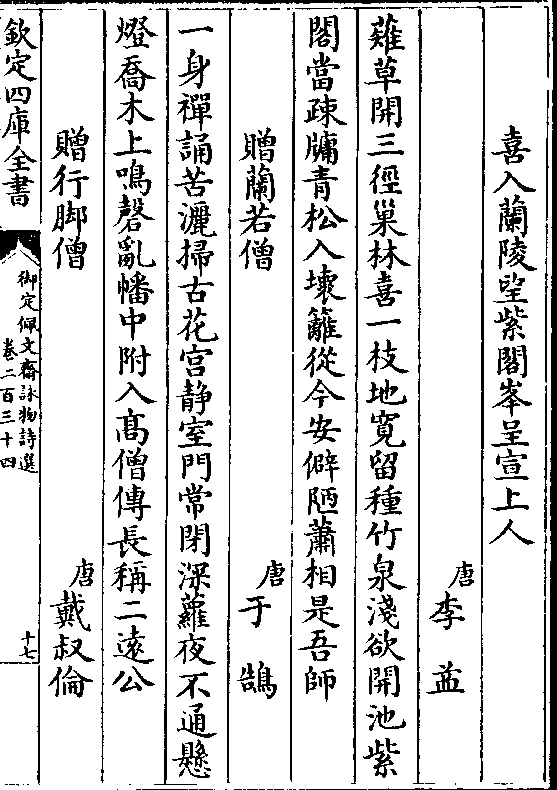 喜入蘭陵望紫閣峯呈宣上人
唐李益
薙草開三徑巢林喜一枝地寛留種竹泉淺欲開池紫
閣當疎牖青松入壞籬從今安僻陋蕭相是吾師
贈蘭若僧
唐于鵠
一身禪誦苦灑掃古花宫静室門常閉深蘿夜不通懸
燈喬木上鳴磬亂幡中附入髙僧傳長稱二遠公
贈行脚僧
唐戴叔倫
欽定四庫全書
御定佩文齋詠物詩選
卷二百三十四
十七